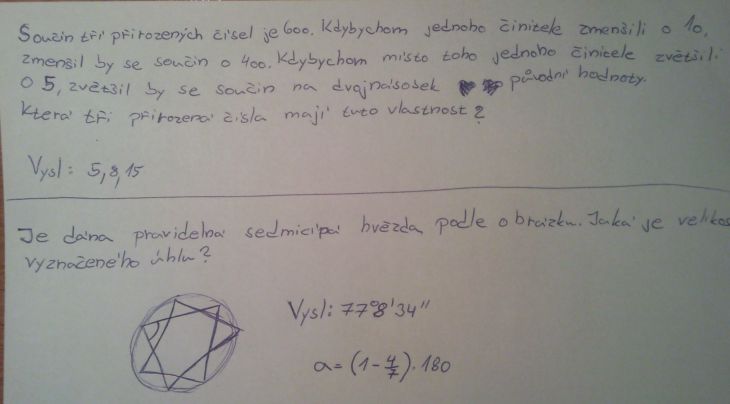 Součin tří přirozených čísel je 600. Kdybychom jednoho činitele zmenšili o 10,
zmenšil by se součin o 400. Kdybychom místo toho jednoho činitele zvětšili
o 5, zvětšil by se součin na dvojnásobek původní hodnoty.
Která tři přirozená čísla mají tuto vlastnost?
Vysl: 5,8,15
Je dána pravidelná sedmicípá hvězda podle obrázku. Jaká je velikos
vyznačeného úhlu?
Vysl: 77°8'34"
a = (1 - 4/7) · 180